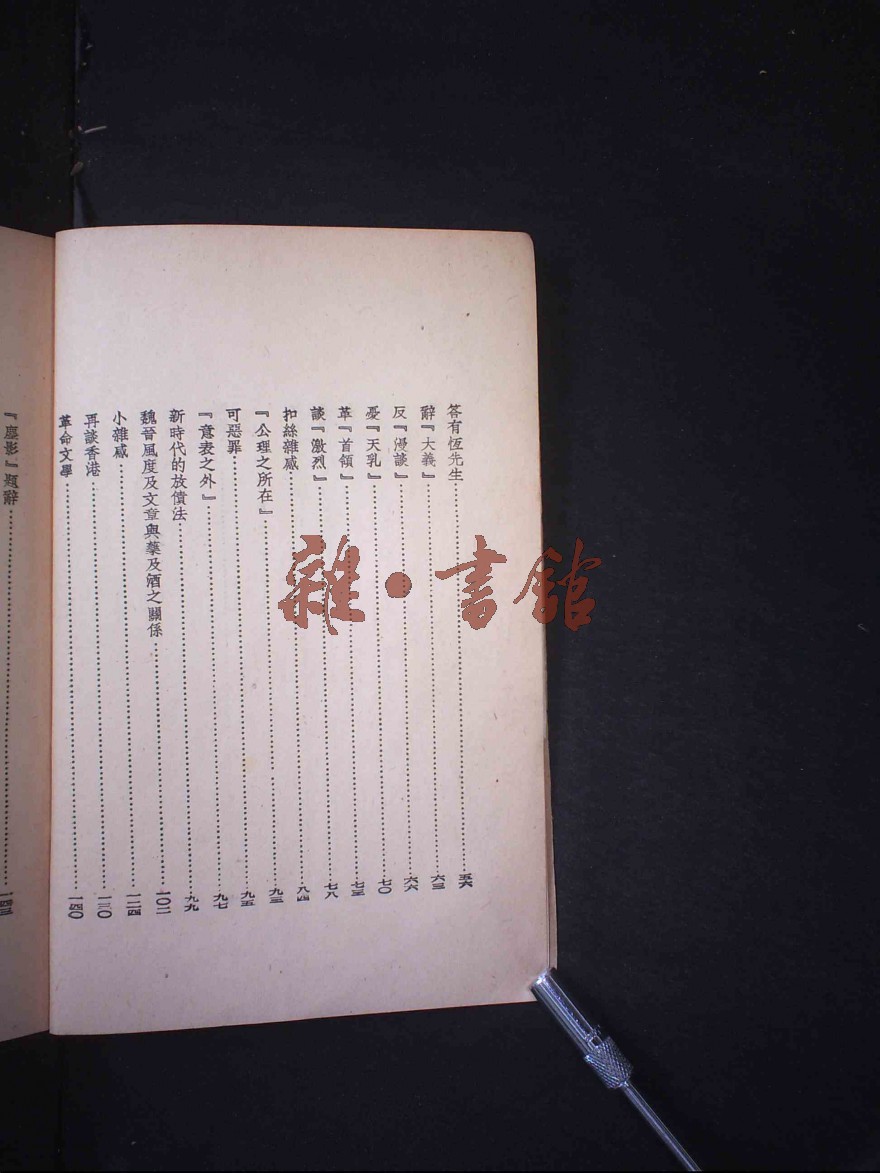 答有恆先生……五六
辭『大義』……六三
反『漫談』……六六
憂『天乳』……七〇
革『首領』……七三
談『激烈』……七八
扣絲雜感……八四
『公理之所在』……九三
可惡罪……九五
『意表之外』……九七
新時代的放債法……九九
魏晉風度及文章與藥及酒之關係……一〇二
小雜感……一二四
再談香港……一三〇
革命文學……一四〇
『塵影』題辭……一四三
雜·書館